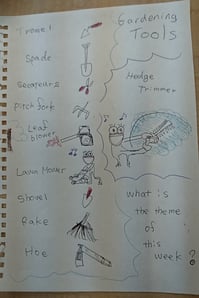 Trowel
Spade
Secateurs
Pitch fork
Leaf
blower
Lawn Mower
Shovel
Rake
Hoe
Gardening
Tools
Hedge
Trimmer
what is
the theme
of
this
week?